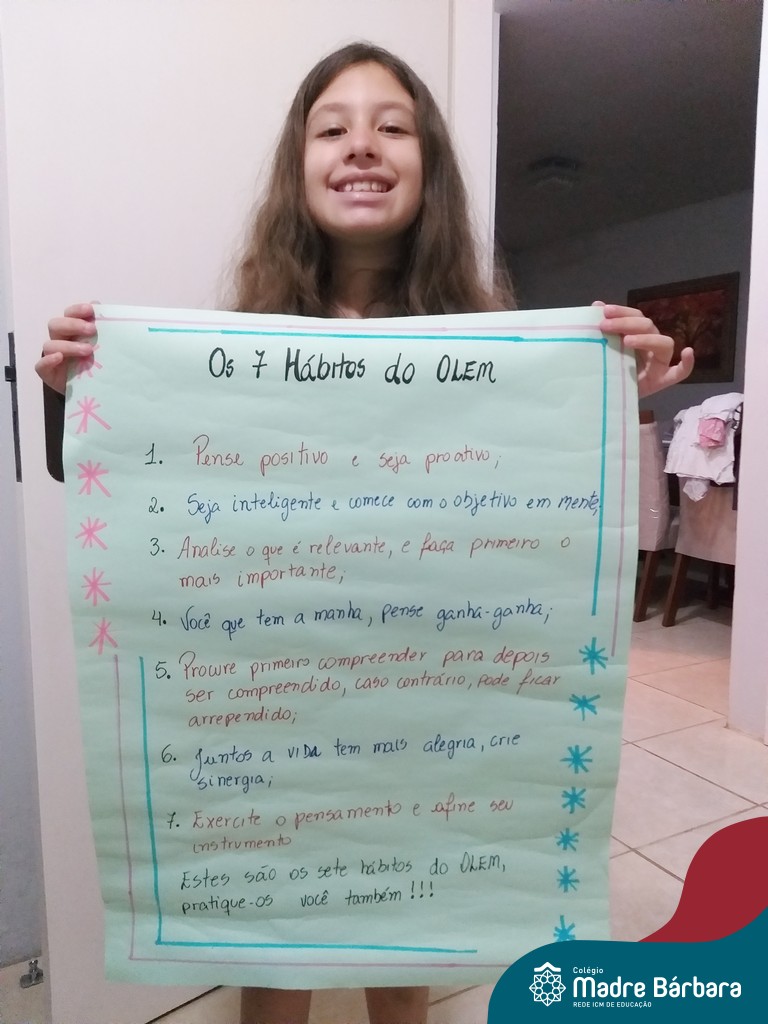 Os 7 Hábitos do OLEM
1. Pense positivo e seja proativo;
2. Seja inteligente e comece com o objetivo em mente;
3. Analise o que é relevante, e faça primeiro o
mais importante;
4. Você que tem a manha, pense ganha-ganha;
5. Procure primeiro compreender para depois
ser compreendido, caso contrário, pode ficar
arrependido;
6. Juntos a vida tem mais alegria, crie
sinergia;
7. Exercite o pensamento e afine seu
instrumento
Estes são os sete hábitos do OLEM,
pratique-os você também!!!
Colégio
Madre Bárbara
REDE ICM DE EDUCAÇÃO